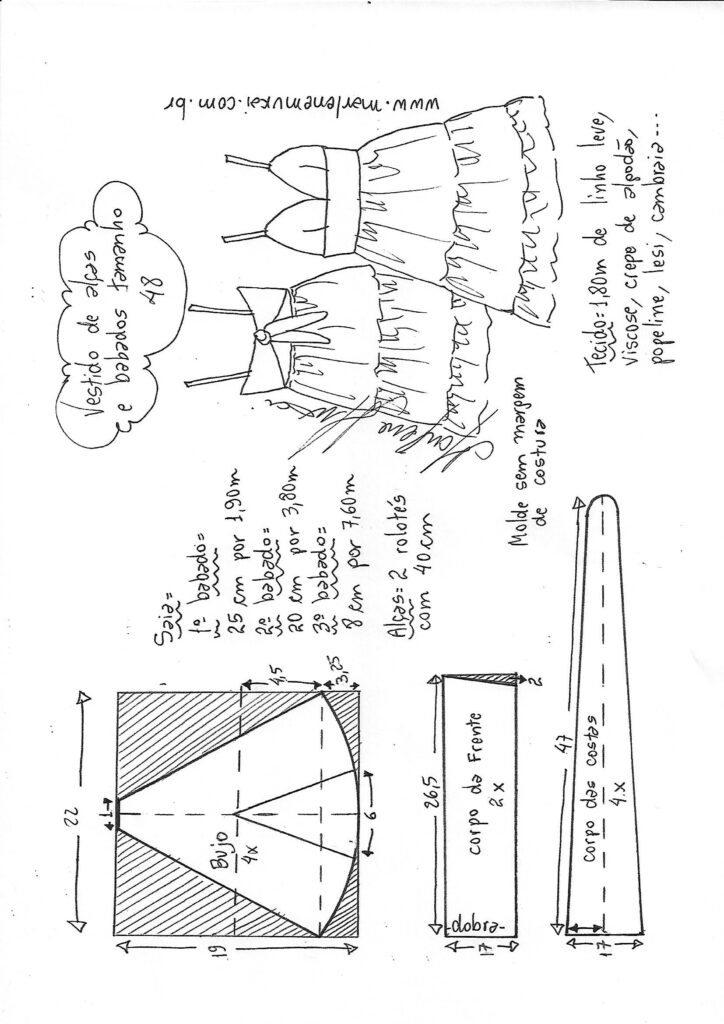 Vestido de alças
e babados tamanho
48
www.marlenemukai.com.br
Tecido=1,80m de linho leve,
viscose, crepe de algodão,
popeline, lesi, cambraia...
Saia=
1º babado=
25 cm por 1,90m
2º babado=
20 cm por 3,80m
3º babado=
8 cm por 7,60m
Alças= 2 rolotés
com 40cm
Molde sem margem
de costura
22
1
19
Bujo
4x
4,5
3,25
6
26,5
corpo da Frente
2x
-dobra-
17
2
47
corpo das costas
4x
17